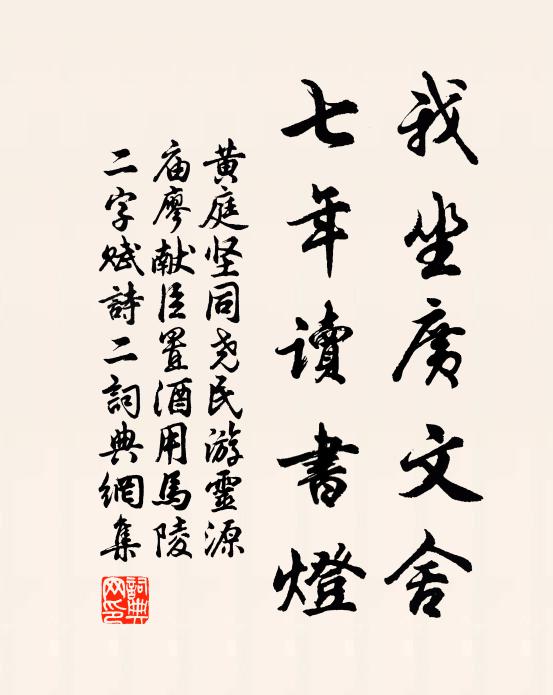 我坐廣文舍
七年讀書燈
黄庭坚同尧民游靈源
庙廖献臣置酒用馬陵
二字赋詩二詞典網集
詞典網印